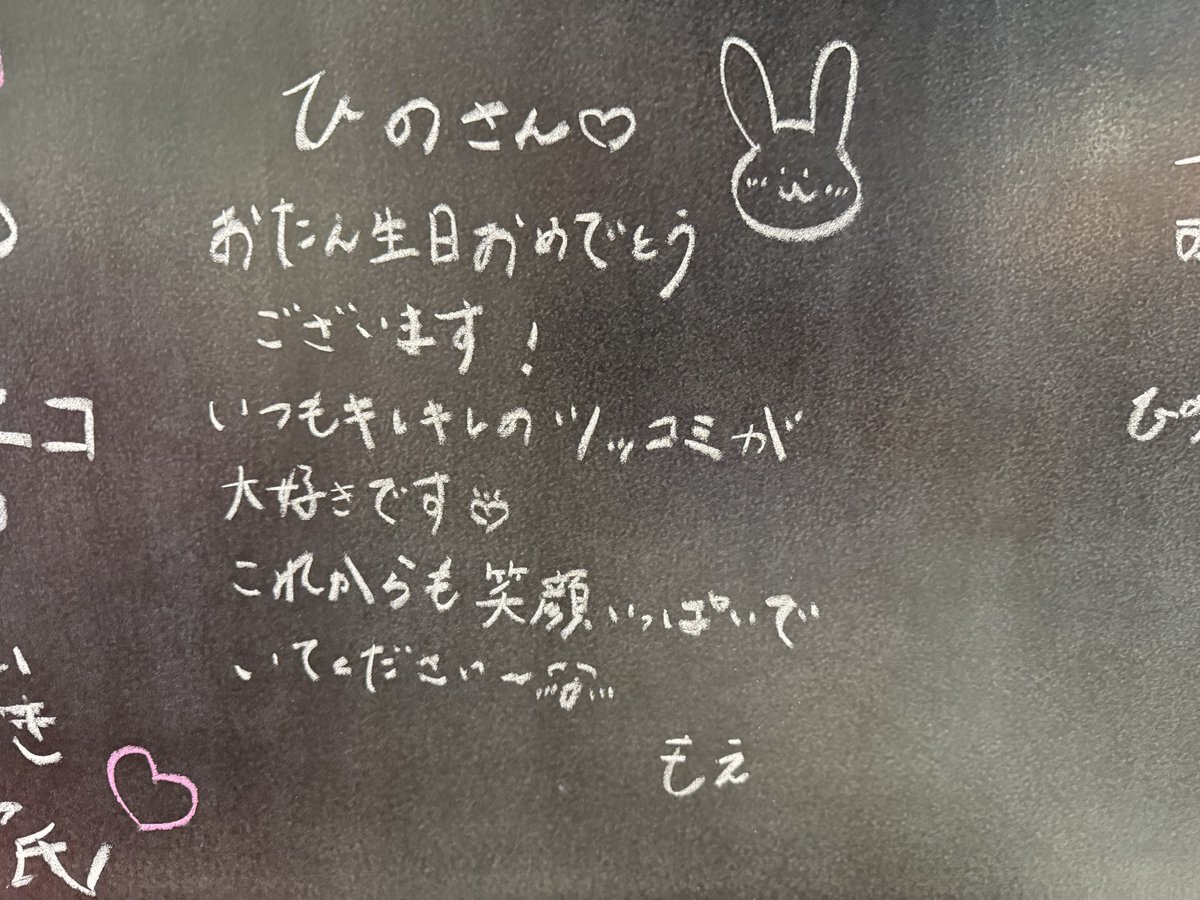 ひのさん♡
おたん生日おめでとう
ございます!
いつもキレキレのツッコミが
大好きです
これからも笑顔いっぱいで
いてくださいー
もえ
コ
き
氏
ひの